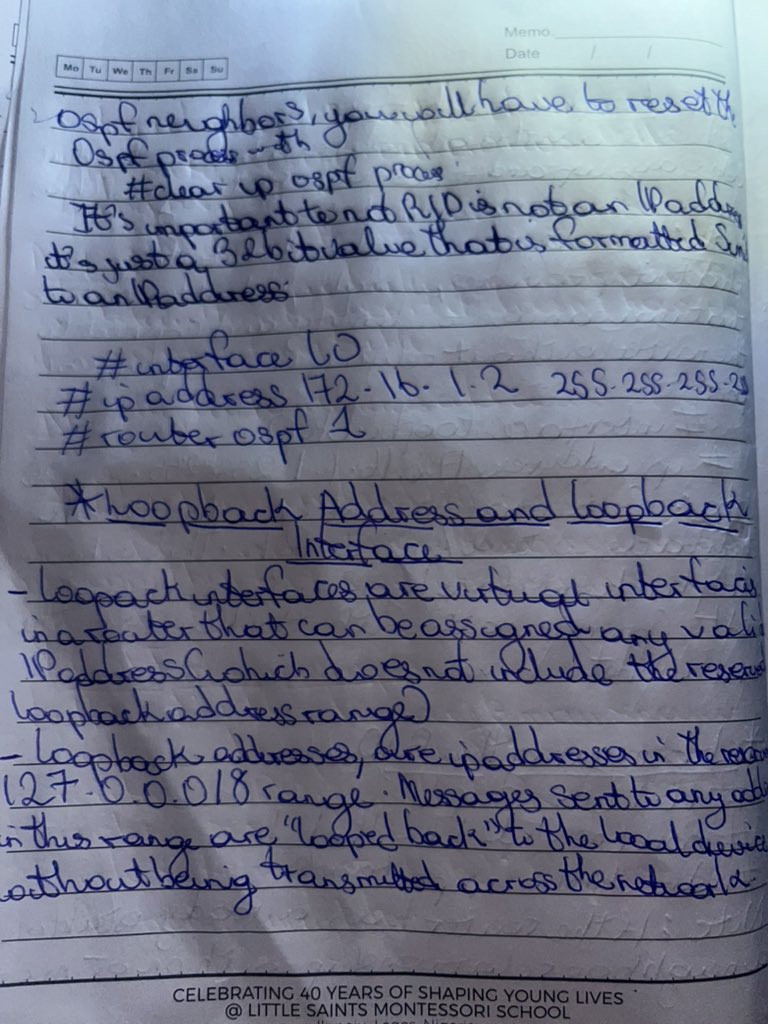 Memo
Date / /
Mo Tu We Th Fr Sa Su
Ospf neighbors, you will have to reset th
Ospf process with
#clear ip ospf process
It's important to not R/D is not an IP address
it's just a 32bit value that is formatted Simi
to an IP address
#interface L0
#ip address 172.16.1.2 255.255.255.25
#router ospf 1
*Loopback Address and Loopback
Interface
- Loopack interfaces are virtual interfaces
in a router that can be assigned any vali
IP address (which does not include the reserv
loopback address range)
- Loopback addresses, are ip addresses in the reserv
127.0.0.0/8 range. Messages sent to any addr
in this range are "looped back" to the local device
without being transmitted across the network.
CELEBRATING 40 YEARS OF SHAPING YOUNG LIVES
@ LITTLE SAINTS MONTESSORI SCHOOL